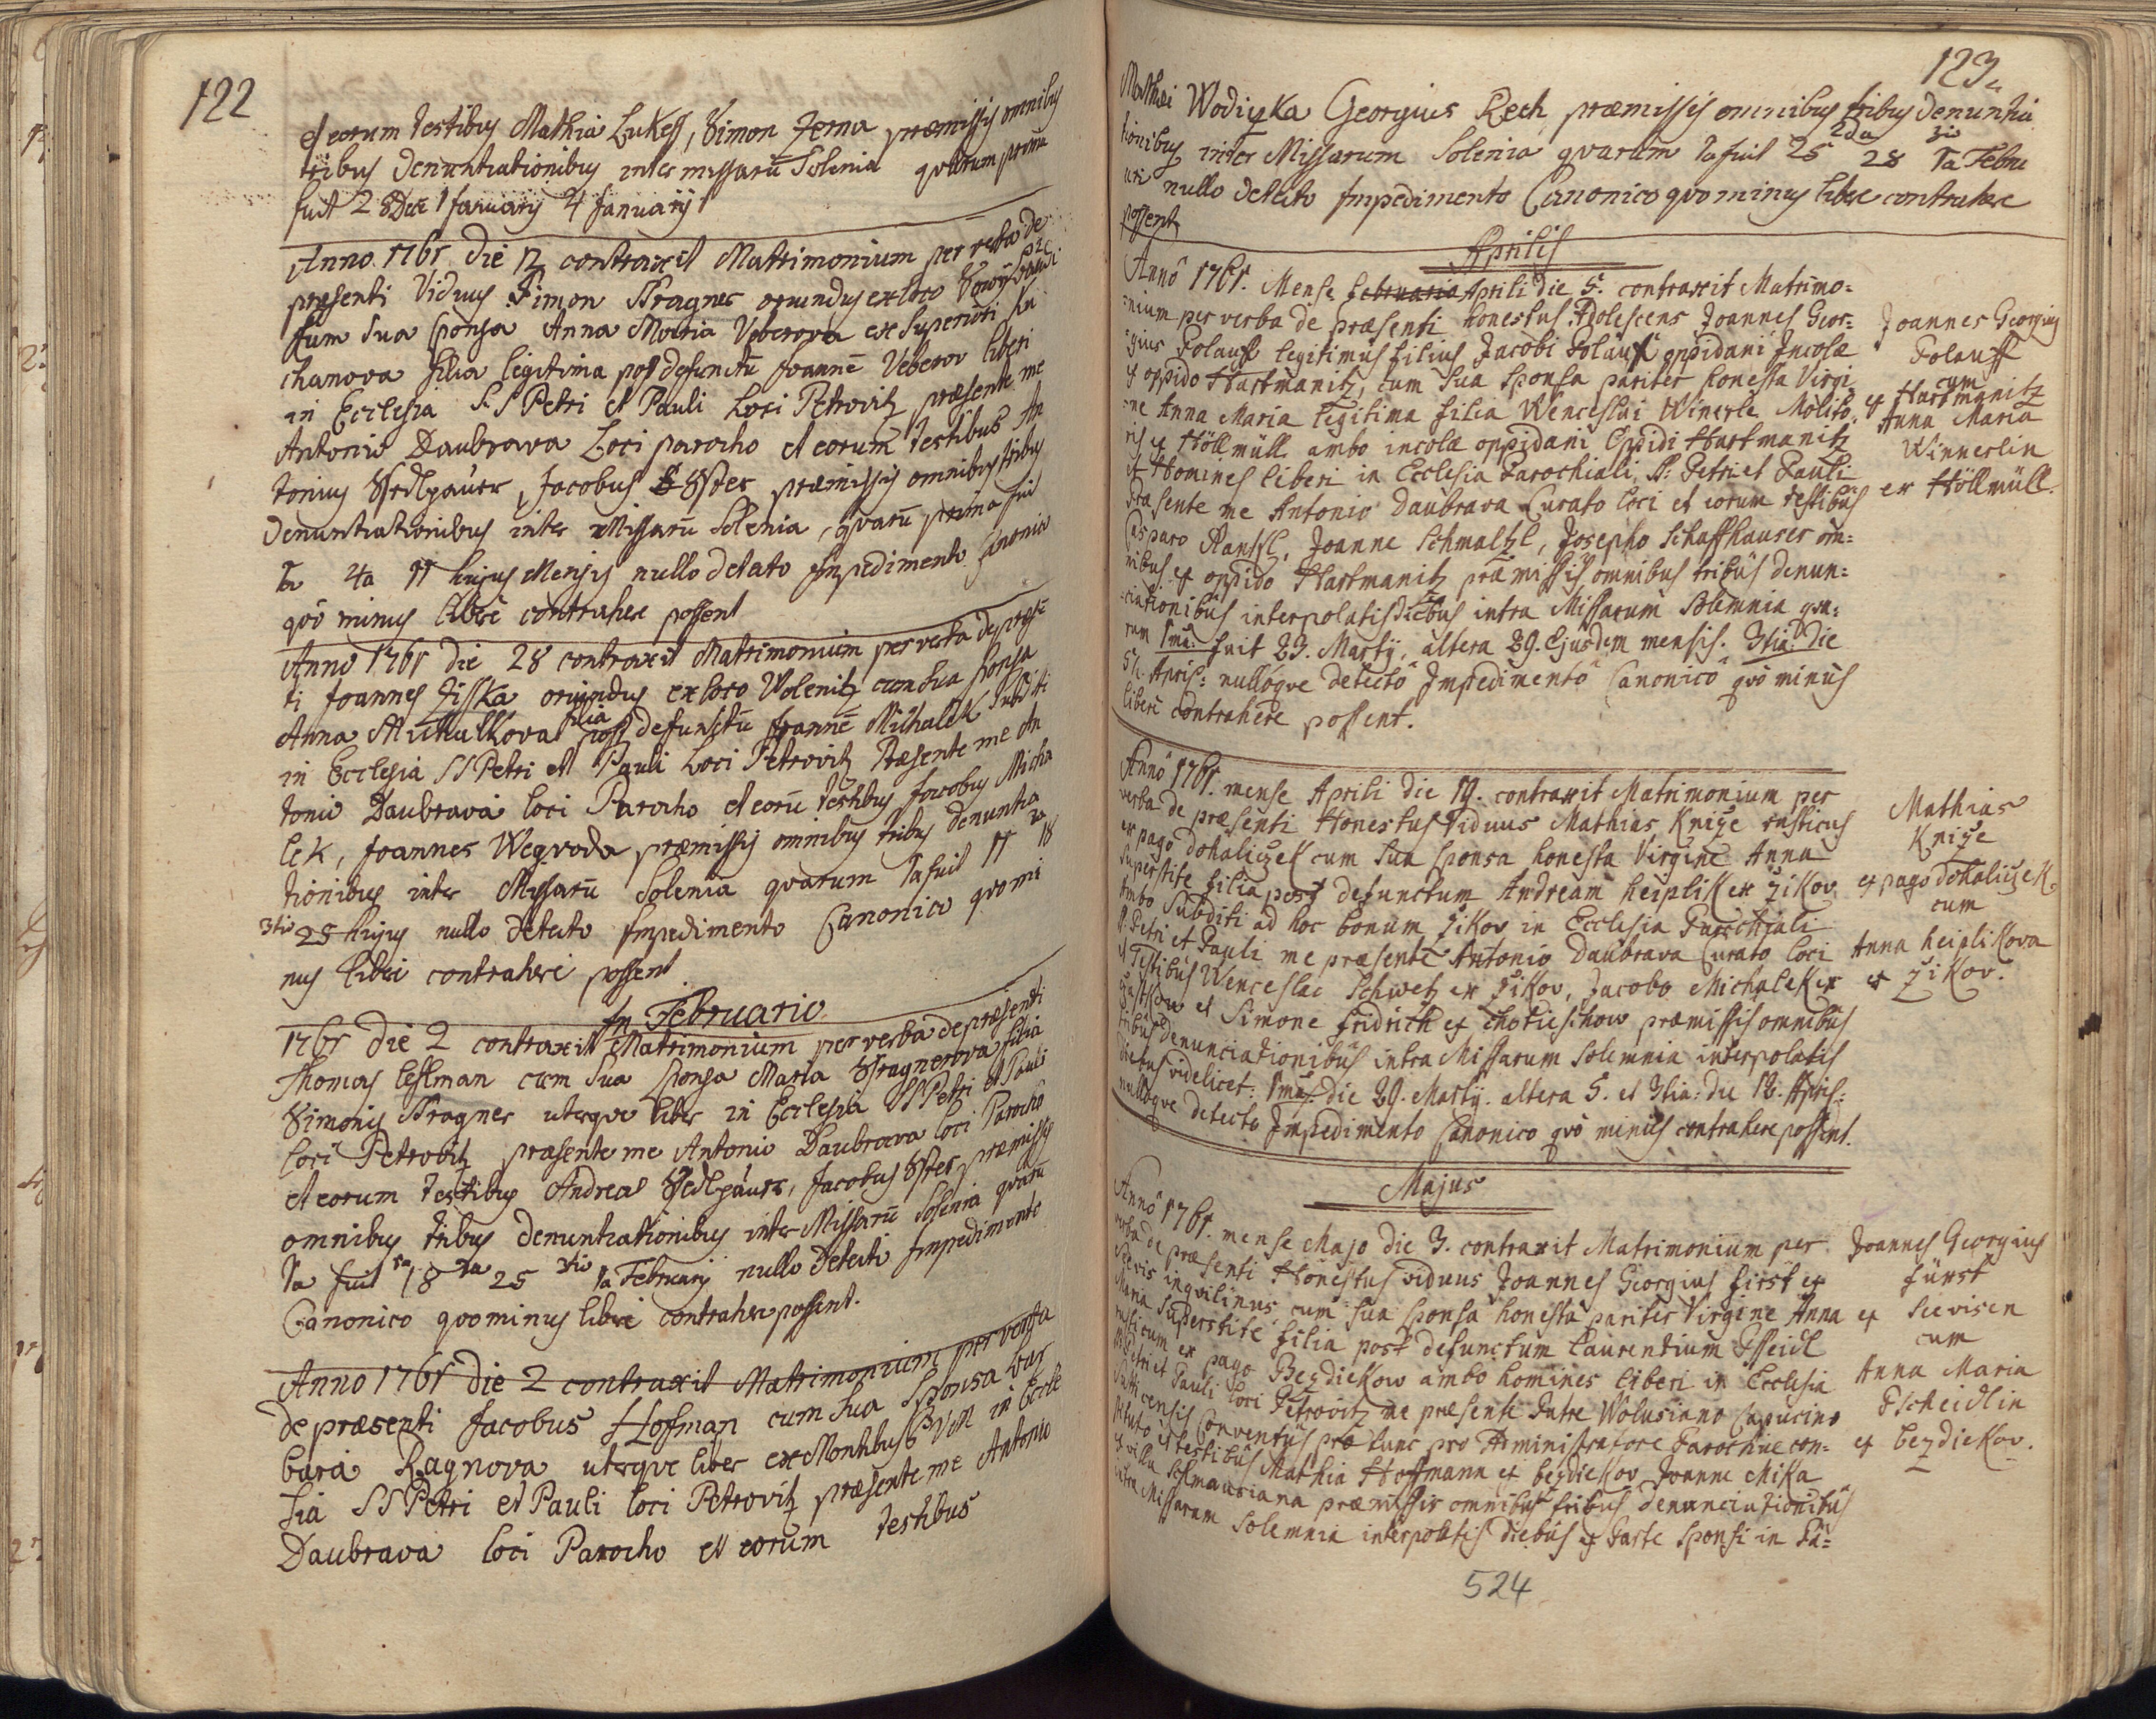 122
et eorum testibus Mathia Lukess, Simon Zema præmissis omnibus
tribus denuntiationibus inter missarū Solenia quarum prima
fuit 28 Dec 1 January 4 January
Anno 1761 die 12 contraxit Matrimonium per verba de
præsenti Viduus Simon Kragner oriundus ex loco
Cum Sua Sponsa Anna Maria Veberova ex Superiori
chanova filia legitima post defunctū Joannē Veberov liberi
in Ecclesia S.S Petri et Pauli Loci Petrovitz præsente me
Antonio Daubrava Loci parocho et eorum testibus An
tonius Sedlpaur, Jacobus præmissis omnibus tribus
Denuntiationibus inter Missarū Solenia, quarū prima fuit
1a 4a 11 hujus Mensis nullo detecto Impedimento Canonico
quo minus libere contrahere possent
Anno 1761 die 28 contraxit Matrimonium per verba de præsē
ti Joannes Zisska oriundus ex loco Volenitz cum Sua sponsa
Anna Michalkova filia post defunctū Joannē Michalek Subditi
in Ecclesia SS Petri et Pauli Loci Petrovitz Præsente me An
tonio Daubrava loci Parocho et eorū testibus Jacobus Micha
lek, Joannes Wegvoda præmissis omnibus tribus denuntia
tionibus inter Missarū Solenia quarum 1a fuit 11 2a 18
3tio 25 hujus nullo detecto Impedimento Canonico quo mi
nus libere contrahere possent
In Februario
1761 die 2 contraxit Matrimonium per verba de præsenti
Thomas Cesslman cum Sua Sponsa Maria Kragnerova filia
Simonis Kragner uterque liber in Ecclesia SS Petri et Pauli
loci Petrovitz præsente me Antonio Daubrava loci Parocho
et eorum testibus Andrea Sedlpaur, Jacobus præmissis
omnibus tribus denuntiationibus inter Missarū Solenia quarū
1a fuit 18 2a 25 3tio 1a February nullo Detecto Impedimento
Canonico quominus libere contrahere possent.
Anno 1761 die 2 contraxit Matrimonium per verba
de præsenti Jacobus Hofman cum Sua Sponsa Bar
bara Ragnova uterque liber ex Montibus B V M in Eccle
sia SS Petri et Pauli loci Petrovitz præsente me Antonio
Daubrava loci Parocho et eorum testibus
123
Mathæi Wodizka Georgius Rech præmissis omnibus tribus denuntia
tionibus inter Missarum Solenia quarum 1a fuit 25 2da 28 3tio 1a Febru
ari nullo detecto Impedimento Canonico quo minus libere contrahere
possent
Aprilis
Annô 1761. Mense februario Aprili die 5. contraxit Matrimo=
nium per verba de præsenti honestus Adolescens Joannes Geor=
gius Folauff legitimus filius Jacobi Folauff oppidani Incolæ
ex oppido Hartmanitz, cum Sua Sponsa pariter honesta Virgi
ne Anna Maria legitima filia Wenceslai Winerle Molito
ris ex Höllmüll ambo incolæ oppidani Oppidi Hartmanitz
et Homines liberi in Ecclesia Parochiali SS: Petri et Pauli
præsente me Antonio Daubrava Curato loci et eorum testibus
Casparo Ranssl, Joanne Schmaltzl, Josepho Schaffhauser om=
nibus ex oppido Hartmanitz præmissis omnibus tribus denun=
ciationibus interpolatis diebus intra Missarum Solemnia qua=
rum 1ma: fuit 23. Martÿ, altera 29. Ejusdem mensis. 3tia: die
5. April: nulloque detecto Impedimento Canonico quo minus
libere contrahere possent.
Joannes Georgius
Folauff
ex Hartmanitz
cum
Anna Maria
Winnerlin
ex Höllmüll.
Annô 1761. mense Aprili die 19. contraxit Matrimonium per
verba de præsenti Honestus Viduus Mathias Knize rusticus
ex pago dohaliczek cum Sua Sponsa honesta Virgine Anna
Superstite filia post defunctum Andream heiplik ex Zikov
Ambo Subditi ad hoc bonum Zikov in Ecclesia Parochiali
SS. Petri et Pauli me præsente Antonio Daubrava Curato loci
et Testibus Wenceslao Schwetz ex Zikov, Jacobo Michalek ex
et Simone Fridrich ex Chotieschow præmissis omnibus
tribus denunciationibus intra Missarum Solemnia interpolatis
diebus videlicet: 1ma die 29. Martÿ. altera 5. et 3tia: die 12. April:
nulloque detecto Impedimento Canonico quo minus contrahere possent.
Mathias
Knize
ex pago dohaliczek
cum
Anna heiplikova
ex Zikov.
Majus
Annô 1761. mense Majo die 3. contraxit Matrimonium per
verba de præsenti Honestus viduus Joannes Georgius first ex
Sevis inquilinus, cum Sua Sponsa honesta pariter Virgine Anna
Maria Superstite filia post defunctum Laurentium Tsseidl
rusticum ex pago Bezdiekow ambo homines liberi in Ecclesia
SS Petri et Pauli loci Petrovitz me præsente Patre Wolusiano Capucino
Sutticensis Conventus præ tunc pro Administratore Parochiæ con=
stituto et testibus Mathia Hoffmann ex bezdiekov Joanne Mika
ex villa præmissis omnibus tribus denunciationibus
intra Missarum Solemnia interpolatis diebus ex Parte Sponsi in Pa=
Joannes Georgius
fürst
ex Seevisen
cum
Anna Maria
Tscheidlin
ex bezdiekov.
524